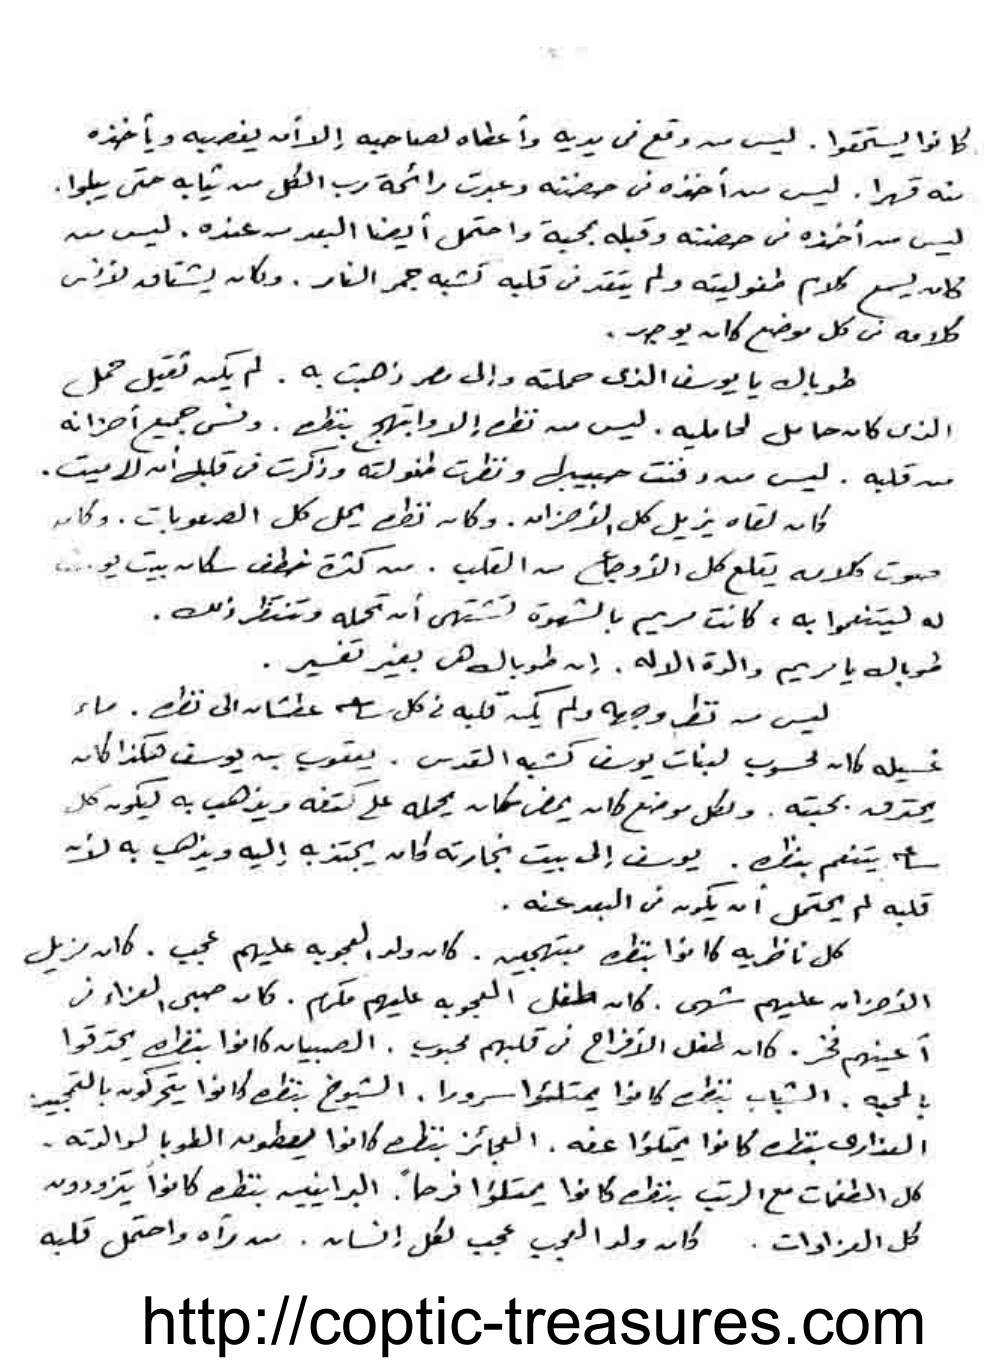 كانوا يستحقوا. ليس من وقع فى يديه وأعطاه لصاحبه إلا أن يغصبه ويأخذه
منه قهرا. ليس من أخذه فى حضنته وعبرت رائحة رب الكل من ثيابه حتى يبلوا.
ليس من أخذه فى حضنته وقبله بمحبة واحتمل أيضا البعد من عنده. ليس من
كان يسمع كلام طفوليته ولم يتقد فى قلبه كشبه جمر النار. وكان يشتاق لأنس
كلامه فى كل موضع كان يوجد.
طوباك يا يوسف الذى حملته وإلى مصر ذهبت به. لم يكن ثقيل حمل
الذى كان حامل لحامليه. ليس من نظره إلا وابتهج بنظره. ونسى جميع أحزانه
من قلبه. ليس من دفنت حبيبها ونظرت طفولته وذكرت فى قلبها أن لا ميت.
كان لقاه يزيل كل الأحزان. وكان نظره يحل كل الصعوبات. وكان
صوت كلامه يقلع كل الأوجاع من القلب. من كثرة خطف سكان بيت يوسف
له ليتنعموا به، كانت مريم بالشهوة تشتهى أن تحمله وتنتظر ذلك.
طوباك يا مريم والدة الاله. إن طوباك هى بغير تفسير.
ليس من نظر وجهه ولم يكن قلبه فى كل ساعة عطشان الى نظره. ماء
غسيله كان محسوب لبنات يوسف كشبه القدس. يعقوب بن يوسف هكذا كان
يحترق بمحبته. ولكل موضع كان يمضى كان يحمله على كتفه ويذهب به ليكون كل
ساعة يتنعم بنظره. يوسف إلى بيت نجارته كان يجتذبه إليه ويذهب به لأن
قلبه لم يحتمل أن يكون فى البعد عنه.
كل ناظريه كانوا بنظره مبتهجين. كان ولد العجوبه عليهم عجب. كان مزيل
الأحزان عليهم شهى. كان طفل العجوبه عليهم مكرم. كان صبى العزاء فى
أعينهم فخر. كان طفل الأفراح فى قلبهم محبوب. الصبيان كانوا بنظره يحترقوا
بالمحبه. الشباب بنظره كانوا يمتلئوا سرورا. الشيوخ بنظره كانوا يتحركون بالتمجيد
العذارى بنظره كانوا يمتلؤا عفه. العجائز بنظره كانوا يعطون الطوبا لوالدته.
كل الطغمات مع الرتب بنظره كانوا يمتلؤا فرحاً. البرانيين بنظره كانوا يتزودون
كل العزاوات. كان ولد العجب عجب لكل إنسان. من رآه واحتمل قلبه
http://coptic-treasures.com